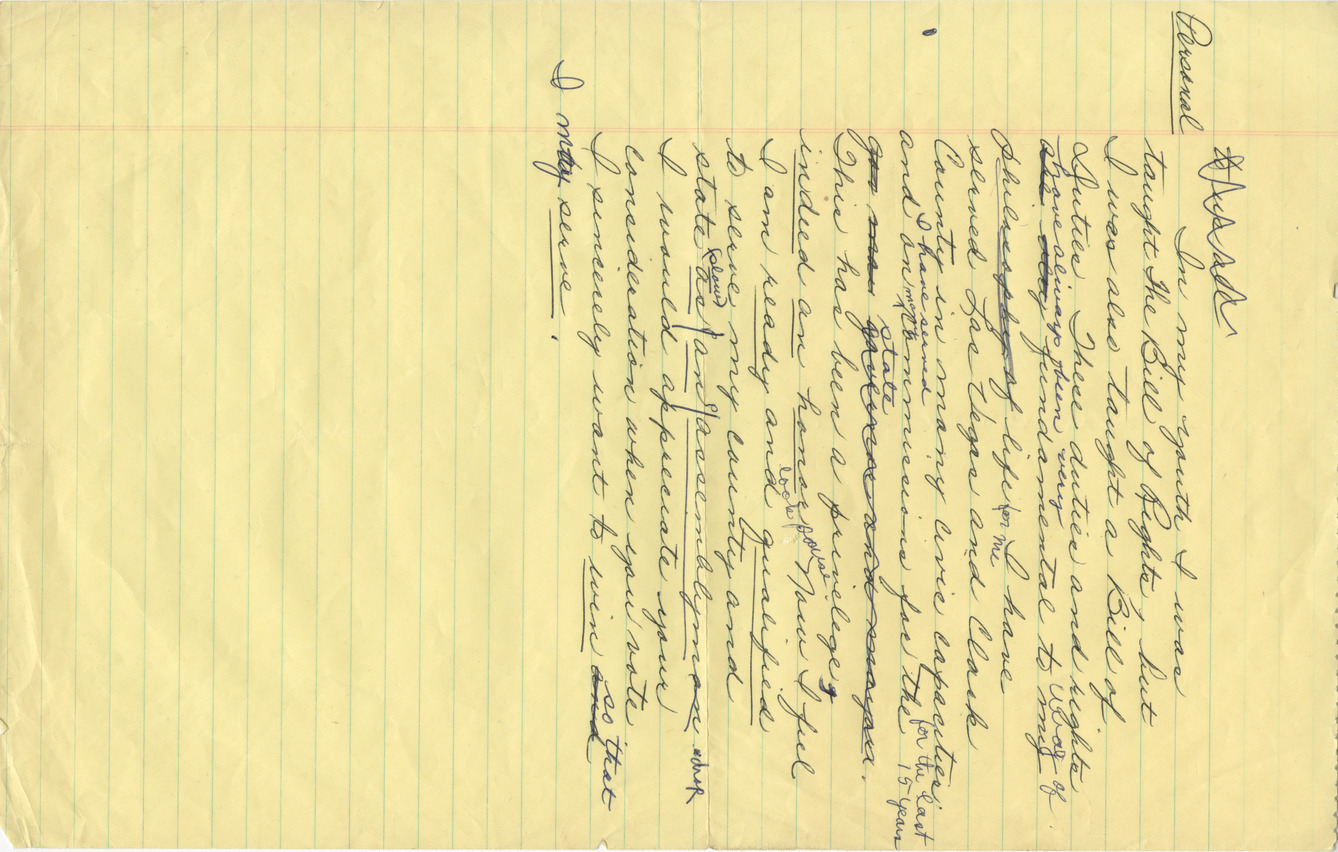 Personal
In my youth I was
taught the Bill of Rights, but
I was also taught a Bill of
Duties These duties and rights
have always been very way of
fundamental to my
philosophy of life for me I have
served Las Vegas and Clark
County in many civic capacities for the last
I have served many 15 years
and on commissions for the
state
governor and mayor.
This has been a privilege,
indeed an honor look pause Now I feel
I am ready and qualified
to serve my county and
slow
state as (an) assemblyman
I would appreciate your
consideration when you vote
I sincerely want to win and so that
I may serve.